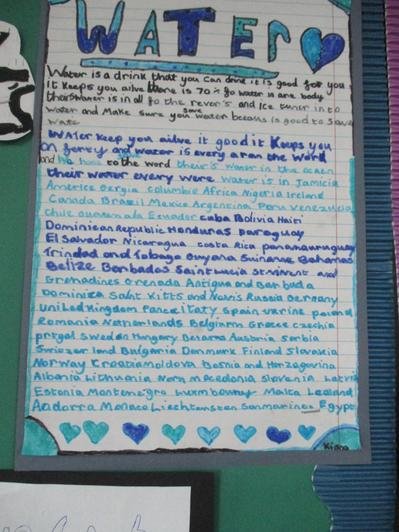 WATER
Water is a drink that you can drink it is good for you
it keeps you ailve there is 70% go water is are body
their water is in all go the rever's and Ice tuner in to
water and make sure you save water becaus is good to save
wate
Water keep you ailve it good it keeps you
on ferey and wazer is every aran the word
and no hose to the word their's water in the ocean
their water every were water is in Jamicia
Americe Gergia columbie Africa Nigeria Ireland
Canada Brazil Mexico Argentina Peru Venezuela
Chile Guatemala Ecuador caba Bolivia Haiti
Dominican Republic Honduras paraguay
El Salvador Nicaragua costa Rica panama uruguay
Trindad and Tobago Guyana Suriname Bahamas
Belize Barbados Saint Lucia St vinvent and
Grenadines Grenada Antigua and Barbuda
Dominica Saint Kitts and Navis Russia Germany
United Kingdom France itaty Spain ukrine poland
Romania Netherlands Belgium Greece czechia
prtgal Sweden Hungary Belarra Austaria Serbia
Swiozer land Bulgaria Denmark Finland Slovakia
Norway Croatia moldova Bosnia and Herzagovina
Albania Lithuania Nora macedonia Slovenia Latvia
Estonia Montenegro Luxmbourny Malta Iceland
Andorra Monaco Liechtensten Sanmarino Egypt
Kiana